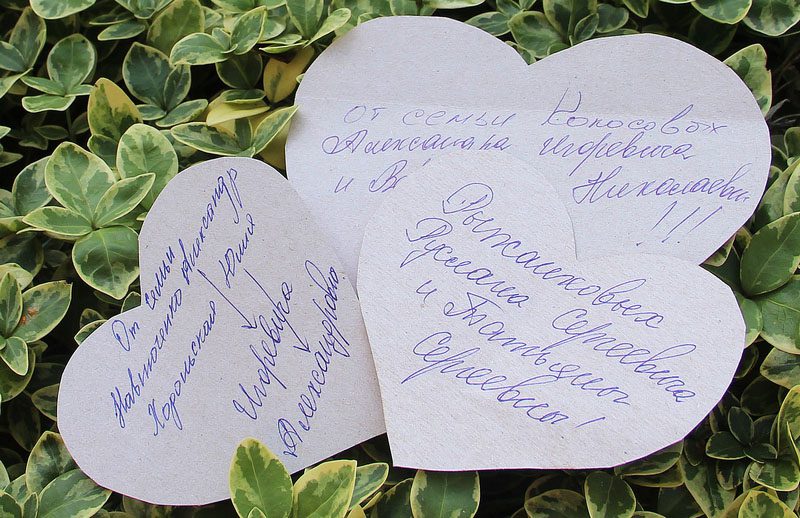 от семьи Колосовых
Александра Игоревича
и Николаевн
!!!
От семьи
Навтоленко Александр
Корольская Юлия
Игоревича
Александровна
Рыжанковых
Руслана Сергеевича
и Татьяны
Сергеевны!